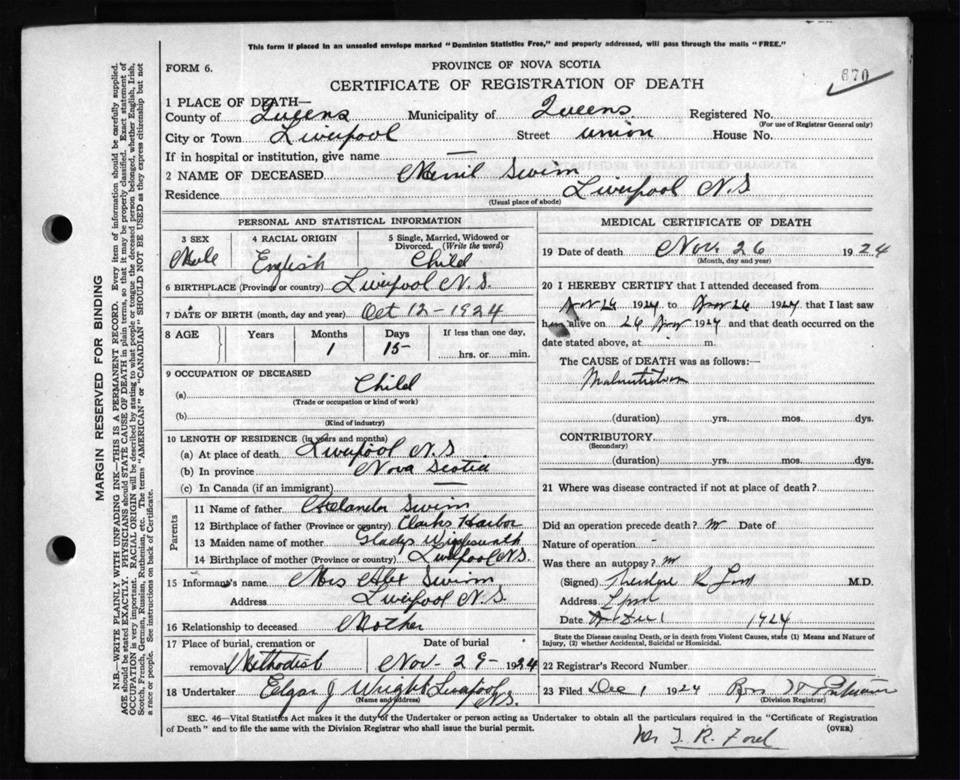 This form if placed in an unsealed envelope marked "Dominion Statistics Free," and properly addressed, will pass through the mails "FREE."
FORM 6.
PROVINCE OF NOVA SCOTIA
670
CERTIFICATE OF REGISTRATION OF DEATH
1 PLACE OF DEATH—
County of Queens Municipality of Queens Registered No.
(For use of Registrar General only)
City or Town Liverpool Street Union House No.
If in hospital or institution, give name —
2 NAME OF DECEASED Swim
Residence Liverpool N.S
(Usual place of abode)
PERSONAL AND STATISTICAL INFORMATION
3 SEX Male
4 RACIAL ORIGIN English
5 Single, Married, Widowed or Divorced. (Write the word) Child
6 BIRTHPLACE (Province or country) Liverpool N.S.
7 DATE OF BIRTH (month, day and year) Oct 12-1924
8 AGE Years Months Days If less than one day,
1 15- hrs. or min.
9 OCCUPATION OF DECEASED
(a) Child
(Trade or occupation or kind of work)
(b)
(Kind of industry)
10 LENGTH OF RESIDENCE (in years and months)
(a) At place of death Liverpool N.S
(b) In province Nova Scotia
(c) In Canada (if an immigrant) —
Parents
11 Name of father Swim
12 Birthplace of father (Province or country) Clarks Harbor
13 Maiden name of mother Gladys
14 Birthplace of mother (Province or country) Liverpool N.S.
15 Informant's name Mrs Alex Swim
Address Liverpool N.S.
16 Relationship to deceased Mother
17 Place of burial, cremation or removal Methodist
Date of burial Nov- 29- 1924
18 Undertaker Elgar J Wright Liverpool N.S.
(Name and address)
MEDICAL CERTIFICATE OF DEATH
19 Date of death Nov. 26 1924
(Month, day and year)
20 I HEREBY CERTIFY that I attended deceased from
Nov 26 1924 to Nov 26 1924 that I last saw
h alive on 26 Nov 1924 and that death occurred on the
date stated above, at m.
The CAUSE of DEATH was as follows:—
Malnutrition
(duration) yrs. mos. dys.
CONTRIBUTORY
(Secondary)
(duration) yrs. mos. dys.
21 Where was disease contracted if not at place of death?
Did an operation precede death? Date of
Nature of operation
Was there an autopsy?
(Signed) Theodore R Ford M.D.
Address
Date Dec 1 1924
State the Disease causing Death, or in death from Violent Causes, state (1) Means and Nature of
Injury, (2) whether Accidental, Suicidal or Homicidal.
22 Registrar's Record Number
23 Filed Dec 1 1924
(Division Registrar)
SEC. 46—Vital Statistics Act makes it the duty of the Undertaker or person acting as Undertaker to obtain all the particulars required in the "Certificate of Registration
of Death" and to file the same with the Division Registrar who shall issue the burial permit.
(OVER)
Dr T. R. Ford
MARGIN RESERVED FOR BINDING
N.B.—WRITE PLAINLY WITH UNFADING INK—THIS IS A PERMANENT RECORD. Every item of information should be carefully supplied.
AGE should be stated EXACTLY. PHYSICIANS should STATE CAUSE OF DEATH in plain terms, so that it may be properly classified. Exact statement of
OCCUPATION is very important. RACIAL ORIGIN will be described by stating to what people or tongue the deceased person belonged, whether English, Irish,
Scotch, French, German, Russian, Ruthenian, etc. The terms "AMERICAN" or "CANADIAN" SHOULD NOT BE USED as they express citizenship but not
a race or people. See instructions on back of Certificate.